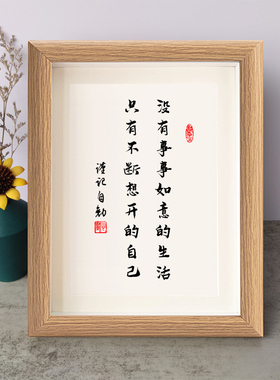 没有事事如意的生活
只有不断想开的自己
谨记自勉